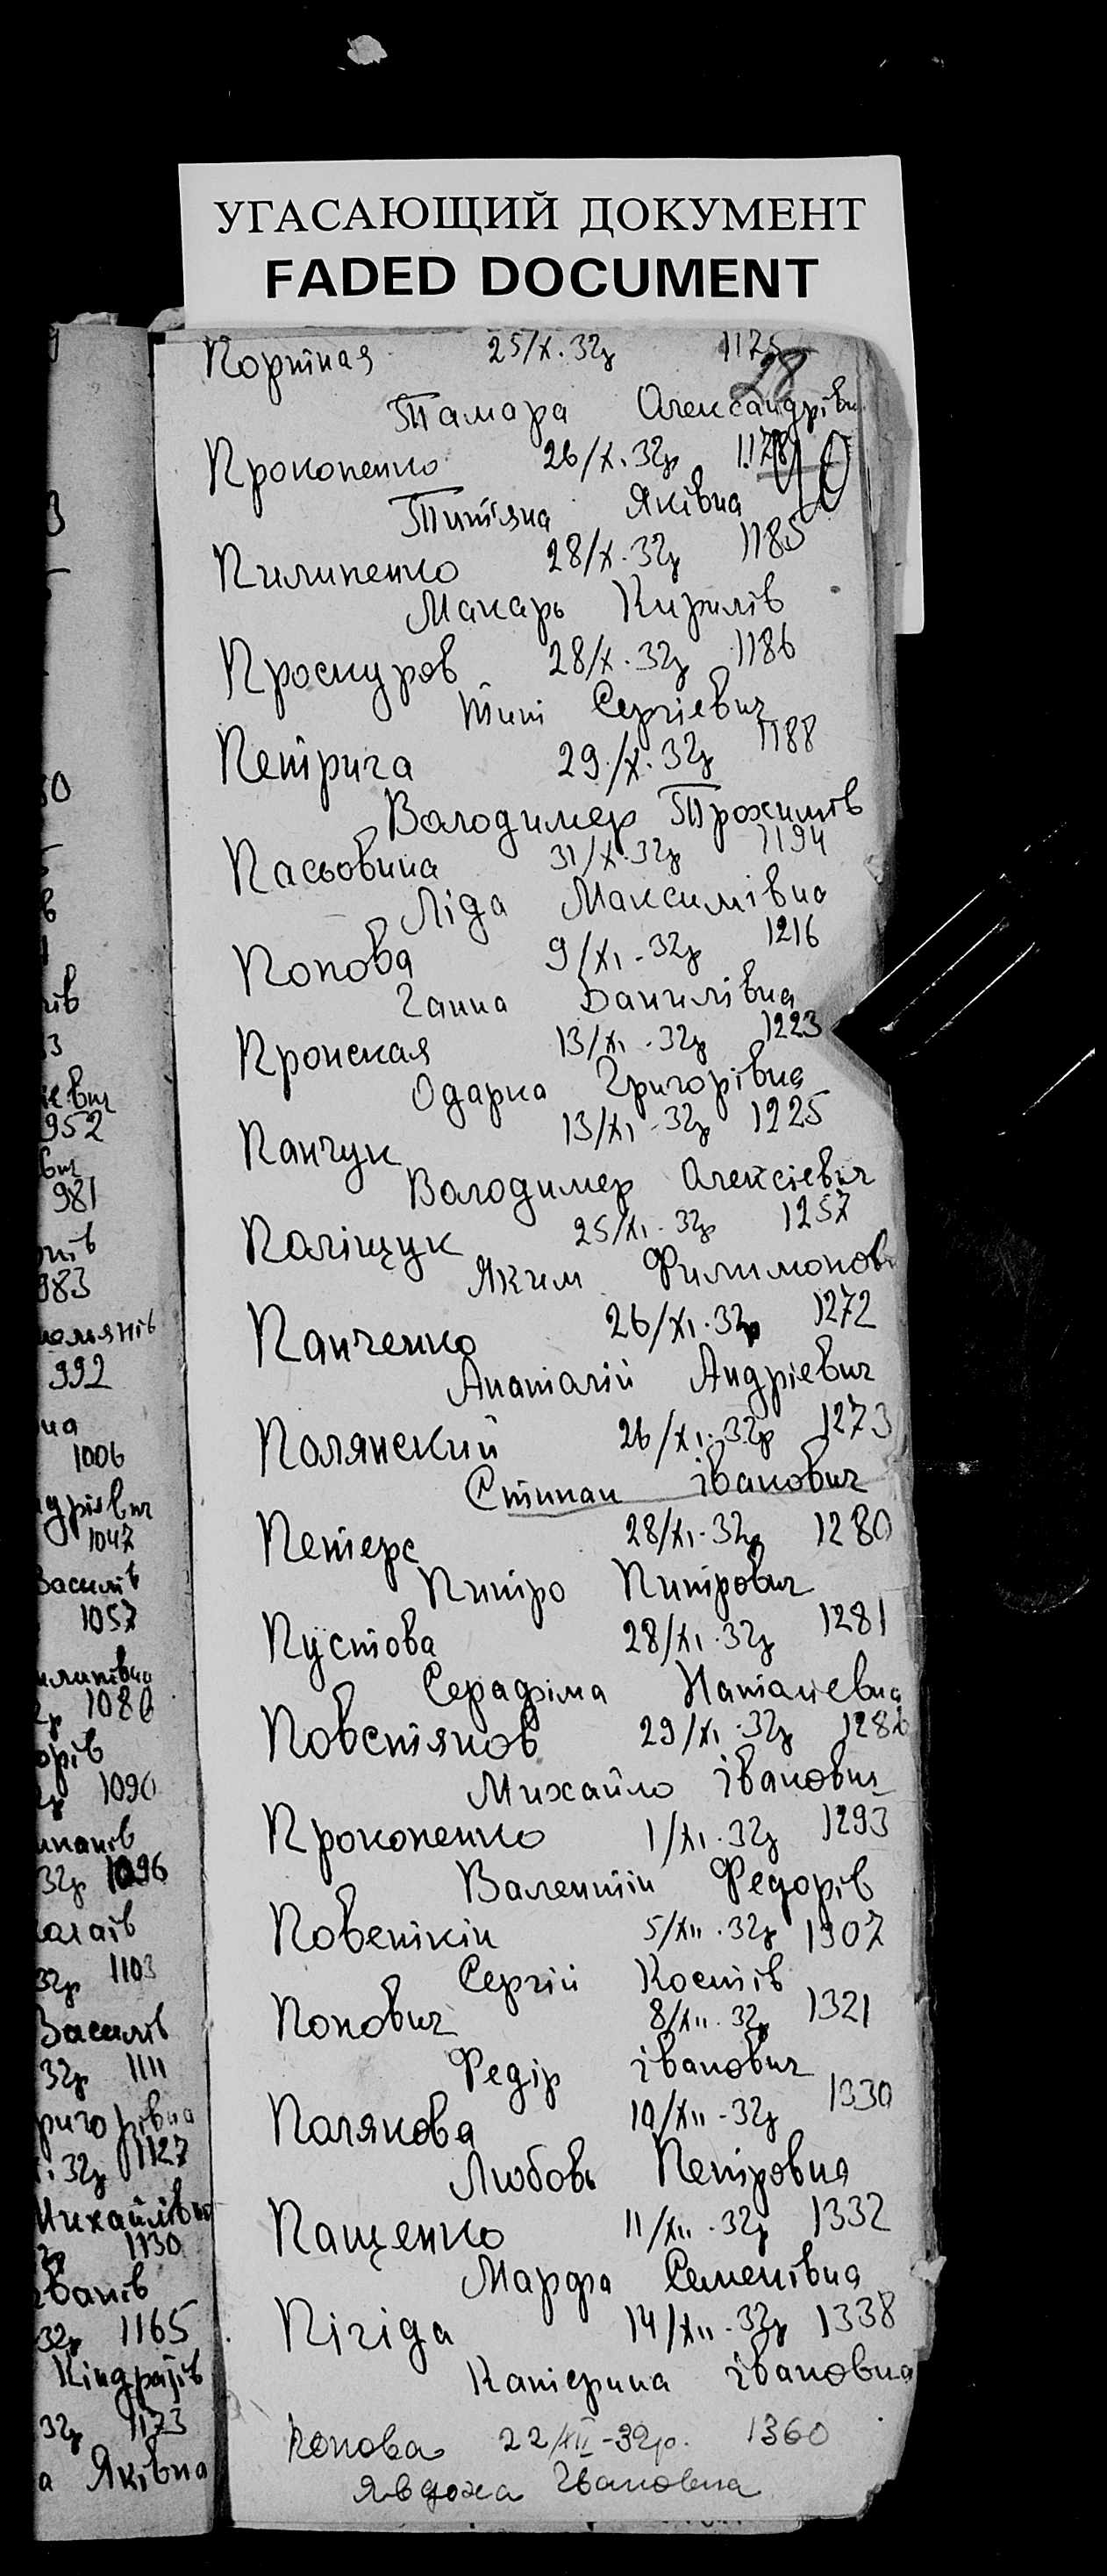 УГАСАЮЩИЙ ДОКУМЕНТ
FADED DOCUMENT
Портная 25/X.32р 1175
28
Тамара Олександрівн
Прокопенко 26/X.32р 1178
40
Титяна Яківна
Пилипенко 28/X.32р 1185
Макарь Кирилів
Проскуров 28/X.32р 1186
Тит Сергіевич
Петрича 29/X.32р 1188
Володимер Трохимів
Пасьовина 31/X.32р 1194
Ліда Максимівна
Попова 9/XI-32р 1216
Ганна Данилівна
Пронская 13/XI-32р 1223
Одарка Григорівна
Панчук 13/XI-32р 1225
Володимер Олексіевич
Поліщук 25/XI-32р 1257
Яким Филимонов
Панченко 26/XI.32р 1272
Анаталій Андріевич
Полянский 26/XI.32р 1273
Стипан іванович
Петерс 28/XI.32р 1280
Питро Питрович
Пустова 28/XI.32р 1281
Серафіма Наталіевна
Повстянов 29/XI.32р 1286
Михайло іванович
Прокопенко 1/XI.32р 1293
Валентін Федорів
Поветкін 5/XII.32р 1307
Сергій Костів
Попович 8/XII.32р 1321
Федір івановыч
Полякова 10/XII-32р 1330
Любовь Петровна
Пащенко 11/XII.32р 1332
Марфа Семенівна
Пігіда 14/XII-32р 1338
Катерина івановна
Попова 22/XII-32р. 1360
Явдоха Івановна
952
981
983
992
1006
1047
1057
1086
1090
32р 1096
32р 1103
Василів
32р 1111
32р 1127
Михайлівна
1130
32р 1165
Кіндратів
32р 1173
а Яківна